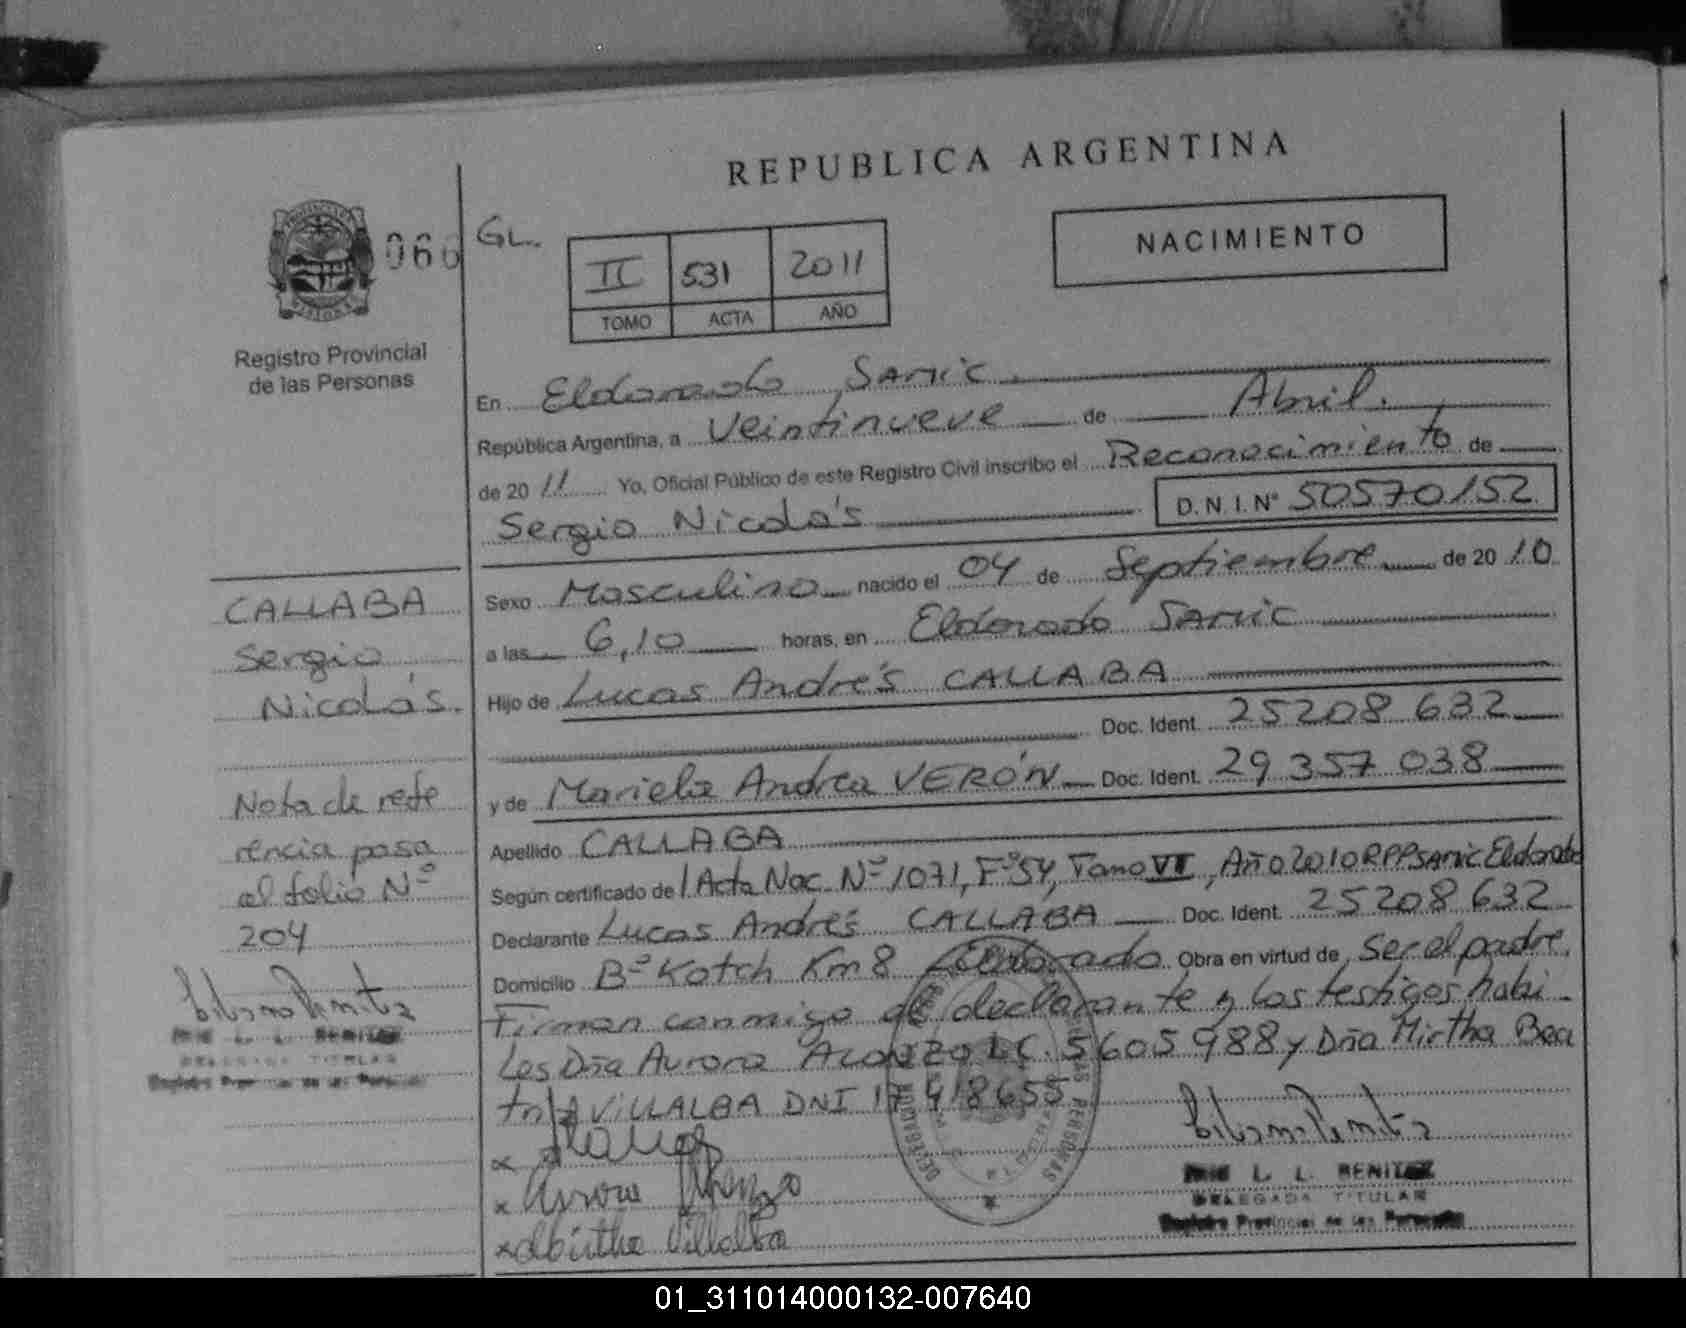 REPUBLICA ARGENTINA
066
GL.
II 531 2011
TOMO ACTA AÑO
NACIMIENTO
Registro Provincial
de las Personas
En Eldorado Samic
República Argentina, a Veintinueve de Abril.
de 20 11 Yo, Oficial Público de este Registro Civil inscribo el Reconocimiento de
Sergio Nicolás D.N.I. Nº 50570152
Sexo Masculino nacido el 04 de Septiembre de 20 10
a las 6,10 horas, en Eldorado Samic
Hijo de Lucas Andrés CALLABA
Doc. Ident. 25208 632
y de Mariela Andrea VERÓN Doc. Ident. 29 357 038
Apellido CALLABA
Según certificado de Acta Nac. Nº 1071, Fº 54, Tomo VI, Año 2010 RPPSamic Eldorado
Declarante Lucas Andrés CALLABA Doc. Ident. 25208 632
Domicilio Bº Kotch Km 8 Eldorado Obra en virtud de Ser el padre,
Firman conmigo el declarante y los testigos habi
les Dña Aurora ALONZO LC. 5605988 y Dña Mirtha Bea
triz VILLALBA DNI 17 418655
CALLABA
Sergio
Nicolás.
Nota de refe
rencia pasa
al folio Nº
204
L. L. BENITEZ
DELEGADA TITULAR
Registro Provincial de las Personas
x
x Aurora Alonzo
x Mirtha Villalba
L. L. BENITEZ
DELEGADA TITULAR
Registro Provincial de las Personas
01_311014000132-007640